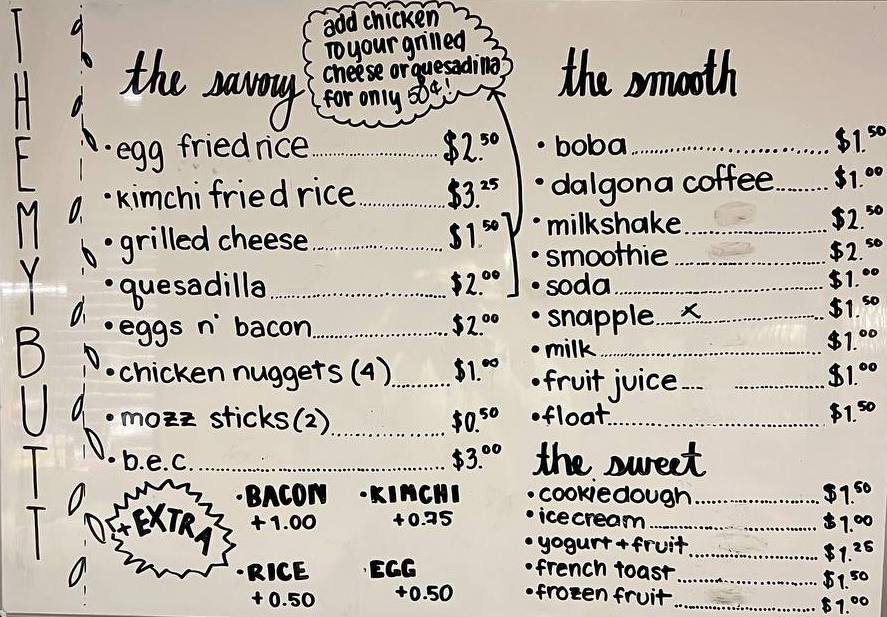 THEMYBUTT
the savory
add chicken
to your grilled
cheese or quesadilla
for only 50¢!
•egg fried rice.................... $2.50
•kimchi fried rice............. $3.25
•grilled cheese.................... $1.50
•quesadilla............................ $2.00
•eggs n' bacon.................... $2.00
•chicken nuggets (4)......... $1.00
•mozz sticks(2).................. $0.50
•b.e.c........................................ $3.00
+EXTRA
•BACON
+1.00
•KIMCHI
+0.75
•RICE
+0.50
•EGG
+0.50
the smooth
•boba.................................... $1.50
•dalgona coffee........ $1.00
•milkshake........................ $2.50
•smoothie.......................... $2.50
•soda.................................... $1.00
•snapple....x.................... $1.50
•milk...................................... $1.00
•fruit juice.... .............. $1.00
•float.................................... $1.50
the sweet
•cookiedough.................... $1.50
•icecream............................ $1.00
•yogurt+fruit.................... $1.25
•french toast.................... $1.50
•frozen fruit.................... $1.00